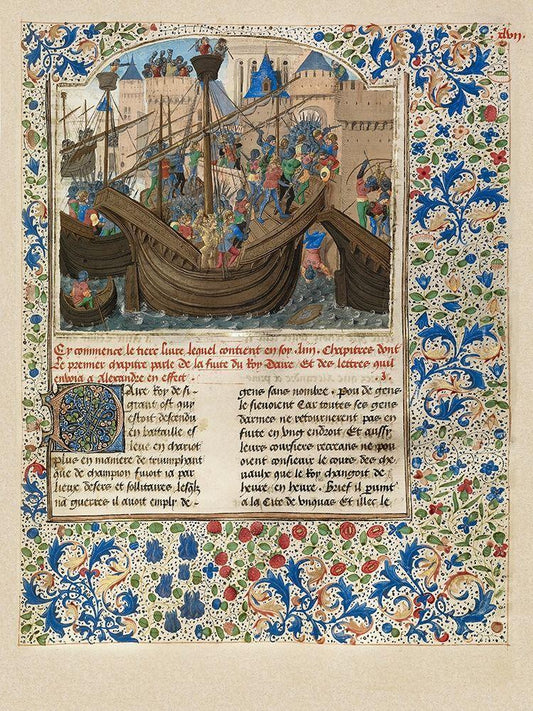 xlvii.
Cy commence le tiers livre lequel contient en soy . Chapitres dont
Le premier chapitre parle de la fuite du Roy Daire Et des lettres quil
envoia a Alexandre en effect .
Daire Roy de si
grant ost qui
estoit descendu
en bataille es
leue en chariot
plus en maniere de triumphant
que de champion fuioit a par
lieux desers et solitaires lesqlz
na guerres il avoit emply de
gens sans nombre . Pou de gens
le sievoient Car toutes ses gens
darmes ne retournerent pas en
fuite en ung endroit Et aussy
leurs coursiers recreans ne po
oient consievir le cours des che
vaulx que le Roy changoit de
heure en heure . Brief il vint
a la Cite de unquas Et illec le